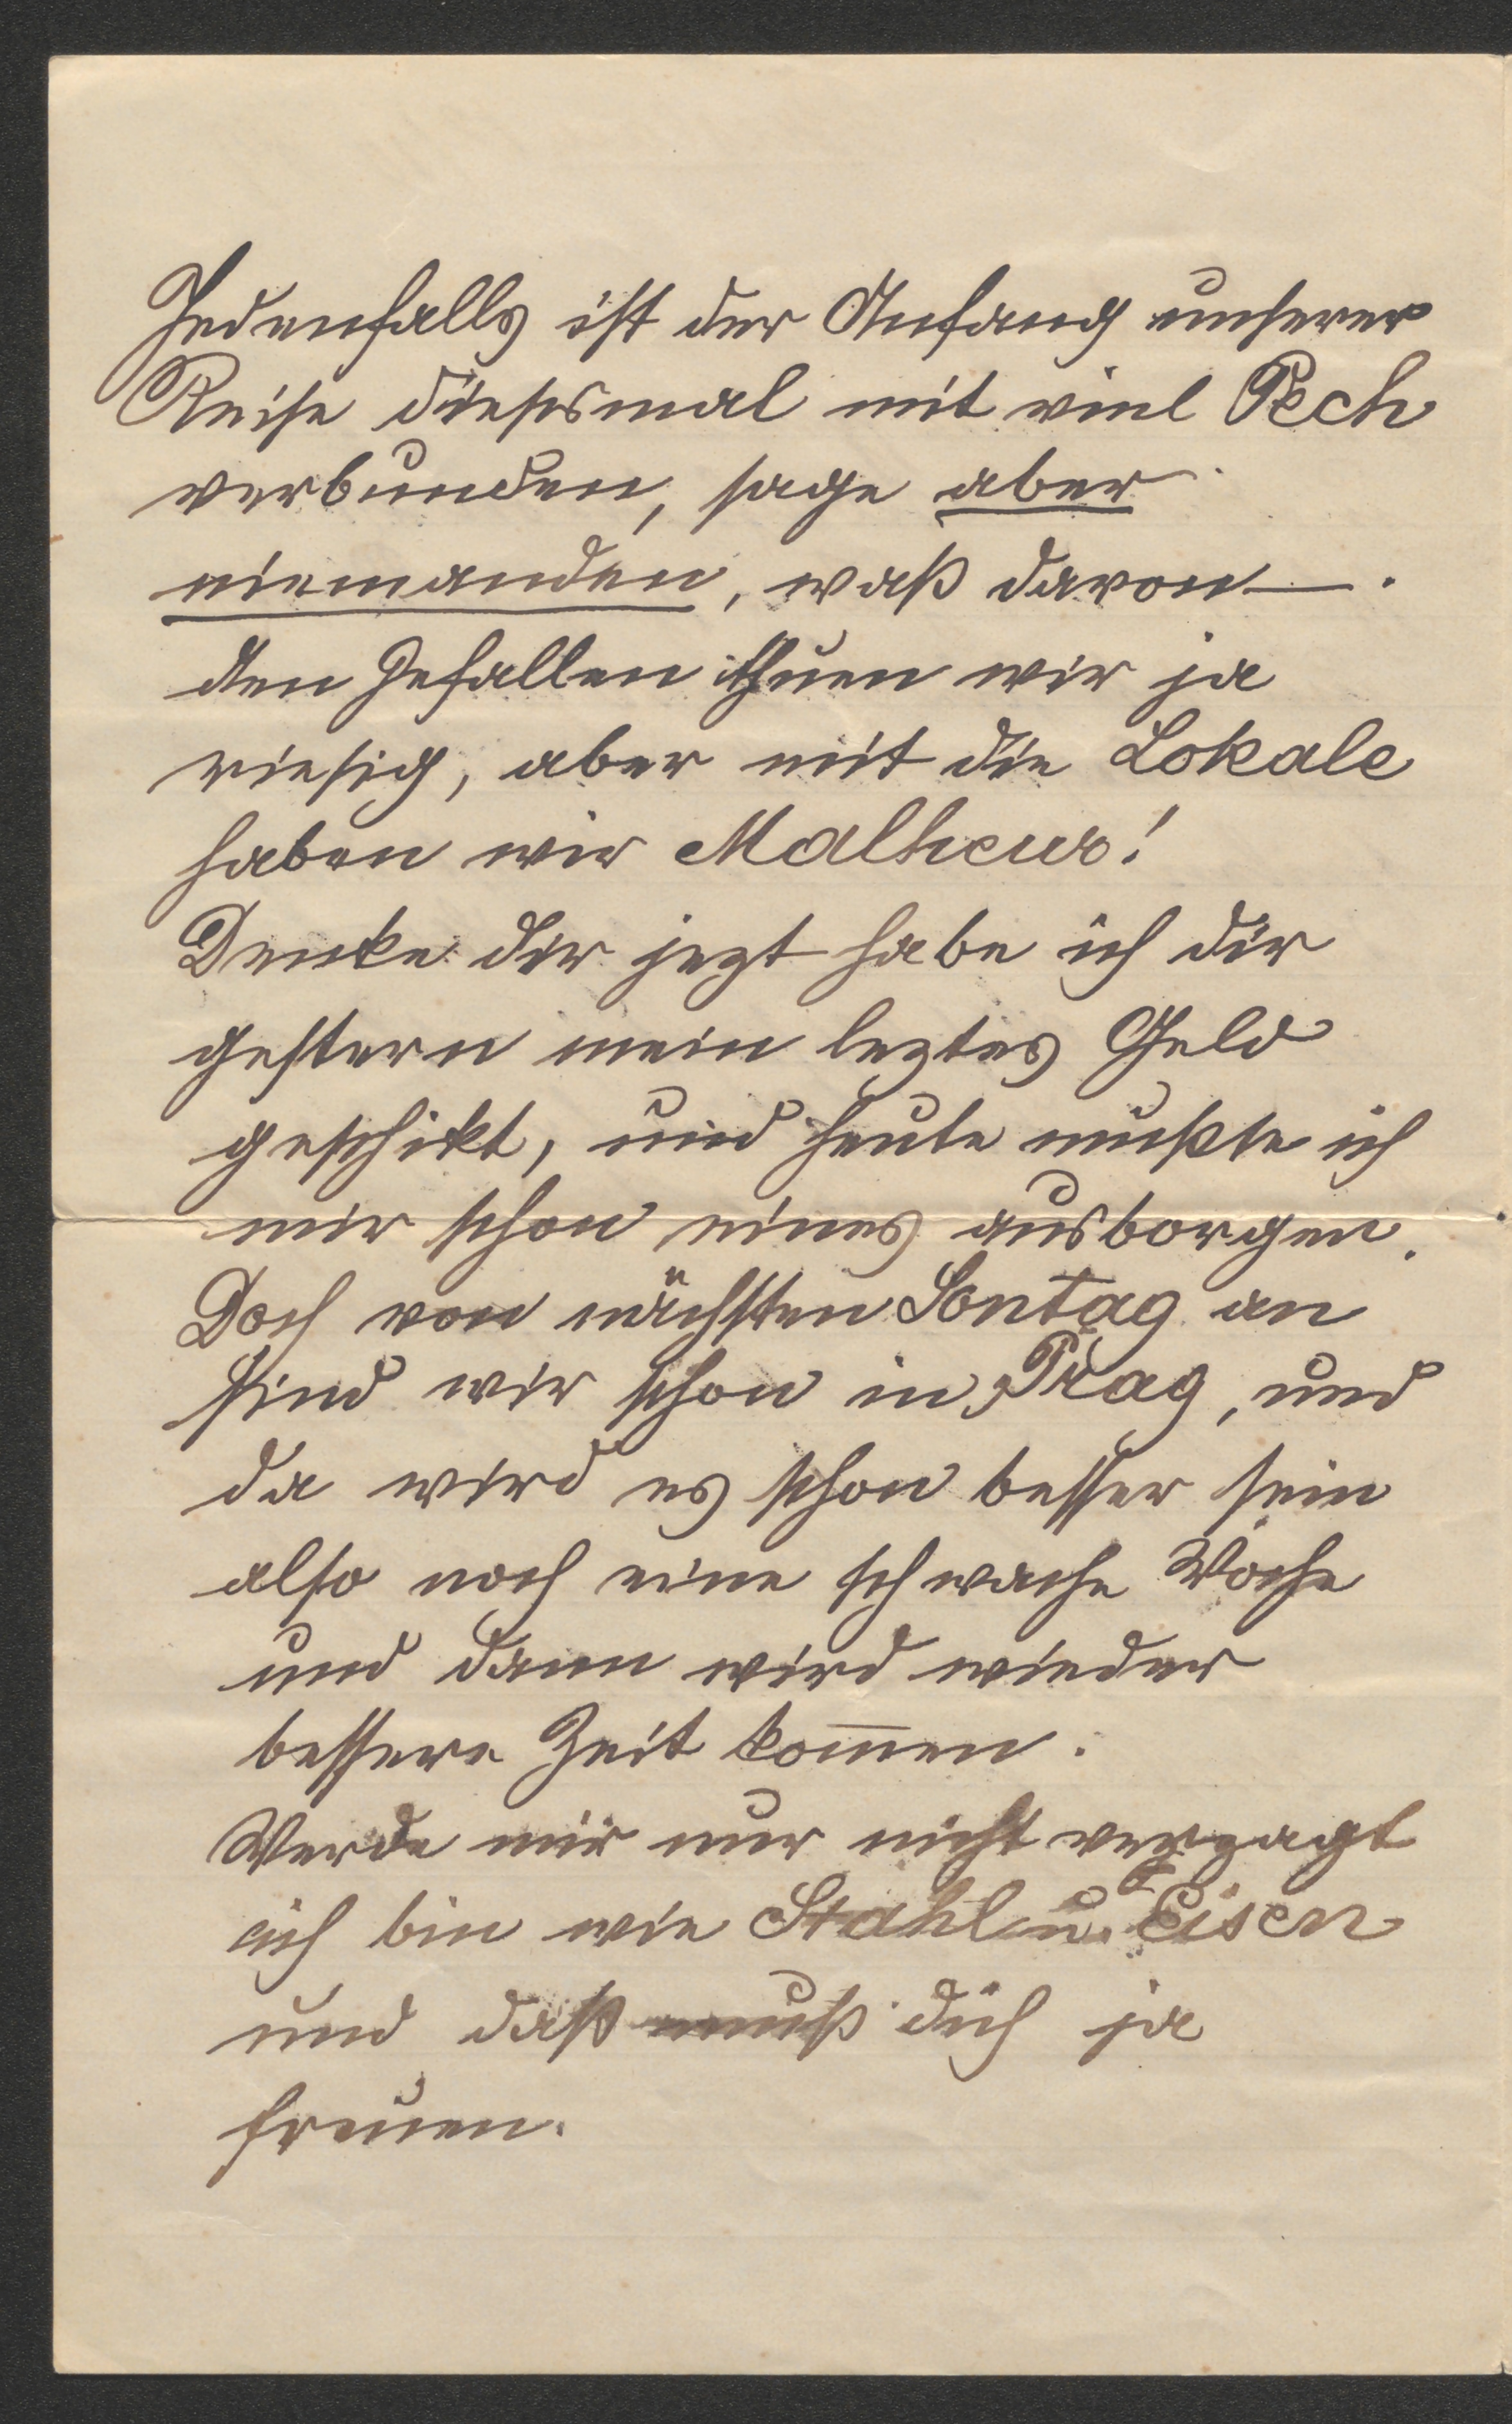 Jedenfalls ist der Anfang unserer
Reise diesesmal mit viel Pech
verbunden, sage aber
niemanden, waß davon —.
den Gefallen thuen wir ja
riesig, aber mit die Lokale
haben wir Malheur!
Denke dir jezt habe ich dir
gestern mein leztes Geld
geschikt, und heute mußte ich
mir schon eines ausborgen.
Doch von nächsten Sontag an
sind wir schon in Prag, und
da wird es schon besser sein
also noch eine schwache Woche
und dann wird wieder
bessere Zeit kom̅en.
Werde mir nur nicht verzagt
ich bin wie Stahl u. Eisen
und daß muß dich ja
freuen.